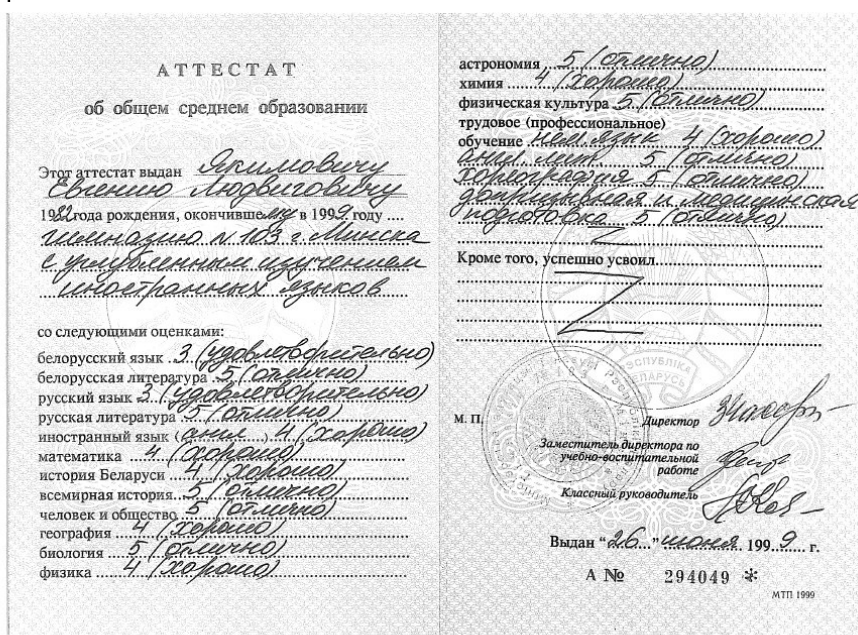 АТТЕСТАТ
об общем среднем образовании
Этот аттестат выдан Якимовичу
Евгению Людвиговичу
1982 года рождения, окончившему в 1999 году ....
гимназию N 103 г. Минска
с углубленным изучением
иностранных языков
со следующими оценками:
белорусский язык 3 (удовлетворительно)
белорусская литература 5 (отлично)
русский язык 3 (удовлетворительно)
русская литература 5 (отлично)
иностранный язык (англ.) 4 (хорошо)
математика 4 (хорошо)
история Беларуси 4 (хорошо)
всемирная история 5 (отлично)
человек и общество 5 (отлично)
география 4 (хорошо)
биология 5 (отлично)
физика 4 (хорошо)
астрономия 5 (отлично)
химия 4 (хорошо)
физическая культура 5 (отлично)
трудовое (профессиональное)
обучение нем. язык 4 (хорошо)
англ. лит. 5 (отлично)
хореография 5 (отлично)
допризывная и медицинская
подготовка 5 (отлично)
Кроме того, успешно усвоил
М. П.
Директор
Заместитель директора по
учебно-воспитательной
работе
Классный руководитель
Выдан "26" июня 1999 г.
А № 294049 *
МТП 1999